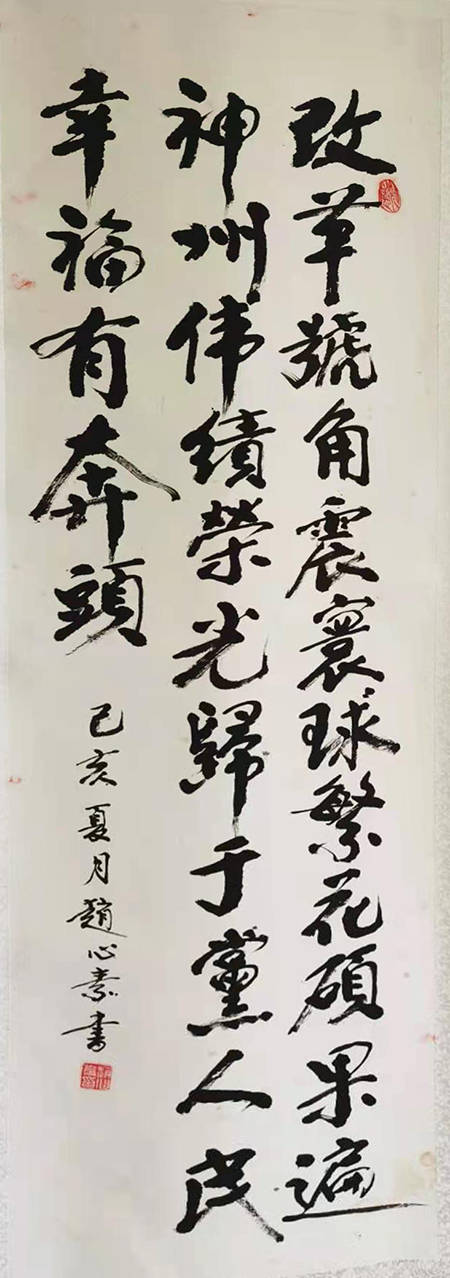 改革號角震寰球繁花碩果遍
神州偉績榮光歸于黨人民
幸福有奔頭
己亥夏月趙心素书